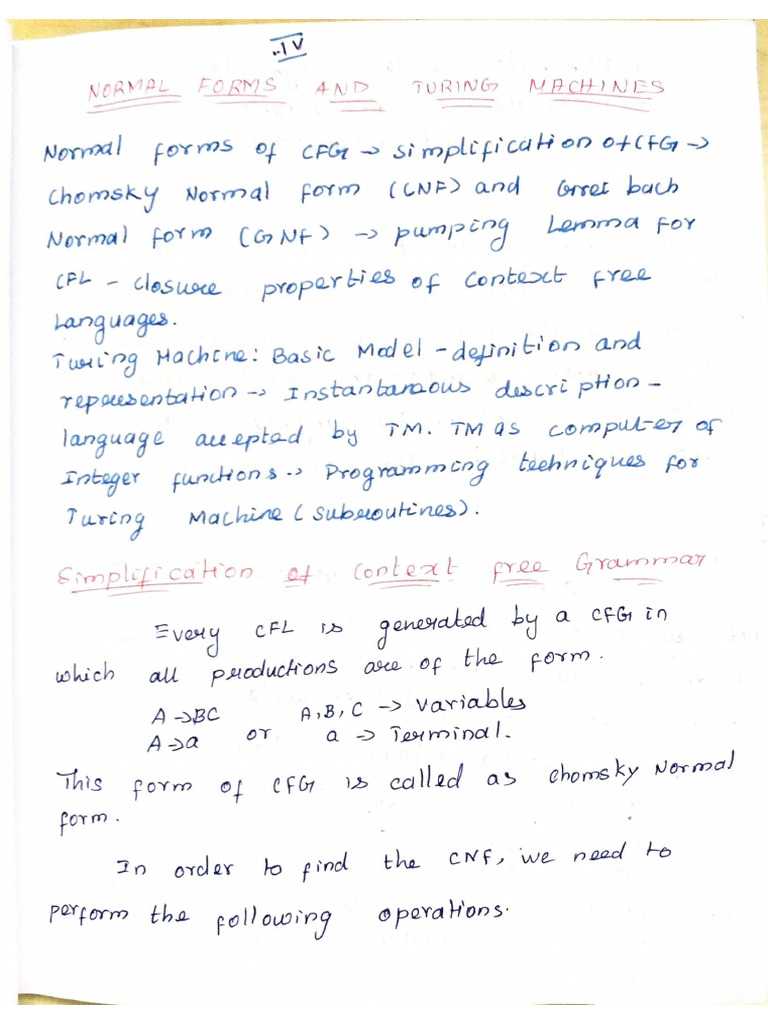 ..IV
NORMAL FORMS AND TURING MACHINES
Normal forms of CFG → simplification of CFG →
Chomsky Normal form (CNF) and Grrei bach
Normal form (GNF) → pumping Lemma for
CFL - closure properties of context free
Languages.
Turing Machine: Basic Model - definition and
representation → Instantaneous description -
language accepted by TM. TM as computer of
Integer functions → Programming techniques for
Turing Machine (subroutines).
Simplification of context free Grammar
Every CFL is generated by a CFG in
which all productions are of the form.
A → BC A, B, C → variables
A → a or a → Terminal.
This form of CFG is called as chomsky Normal
form.
In order to find the CNF, we need to
perform the following operations.